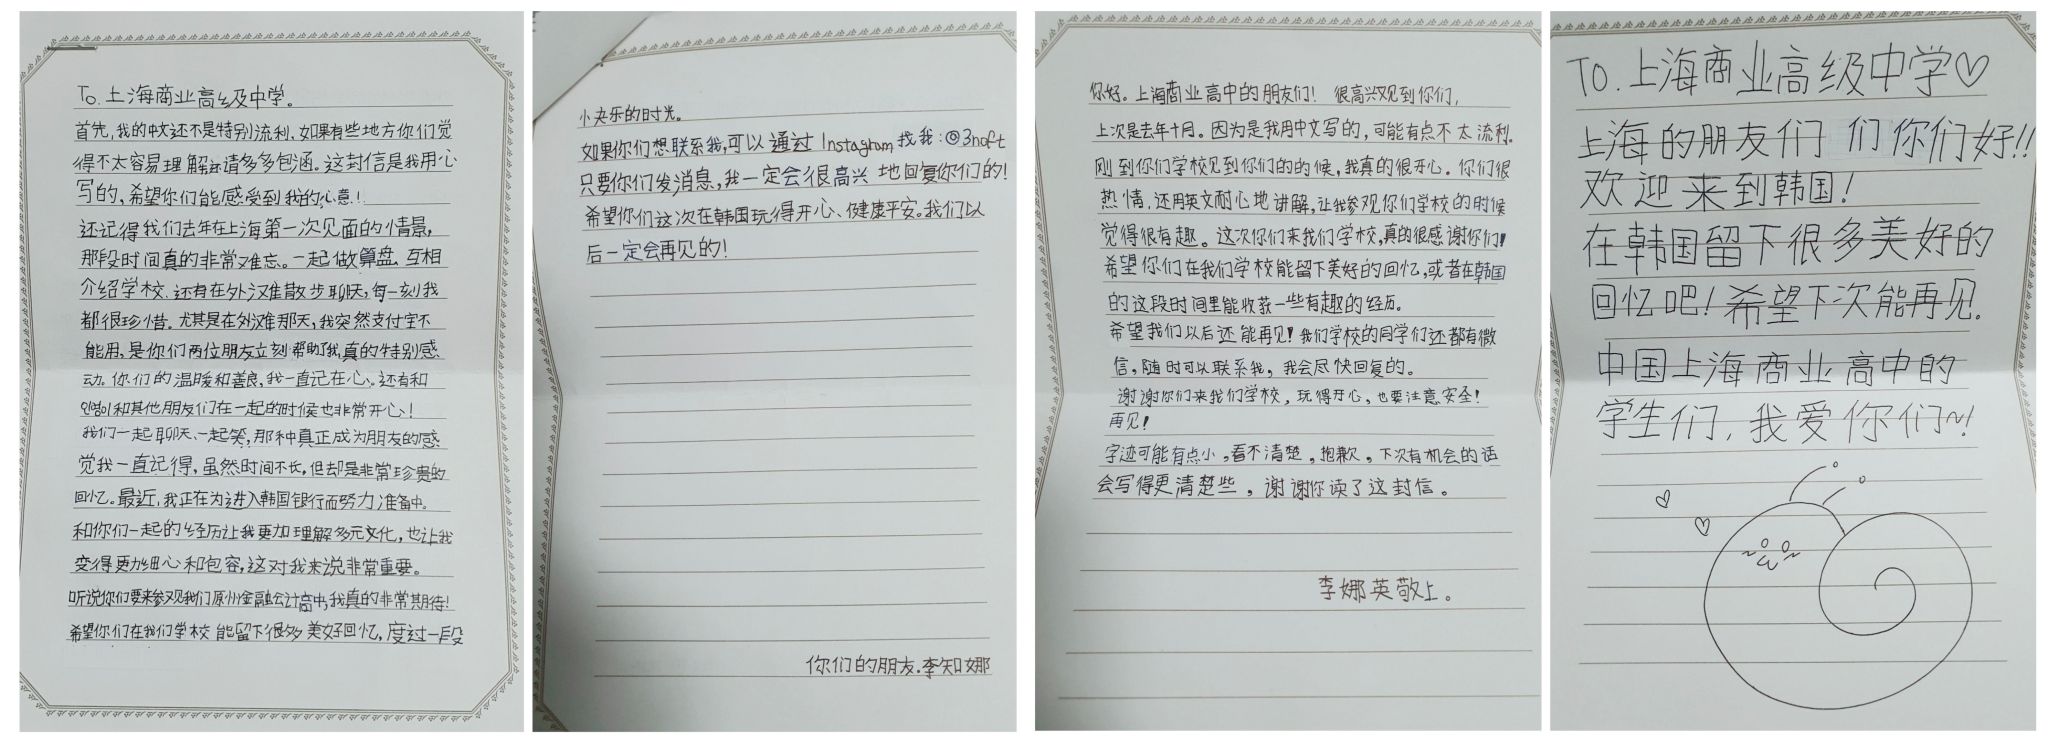 To. 上海商业高级中学。
首先,我的中文还不是特别流利、如果有些地方你们觉
得不太容易理解还请多多包涵。这封信是我用心
写的,希望你们能感受到我的心意!
还记得我们去年在上海第一次见面的情景,
那段时间真的非常难忘。一起做算盘、互相
介绍学校、还有在外滩散步聊天,每一刻我
都很珍惜。尤其是在外滩那天,我突然支付宝不
能用,是你们两位朋友立刻帮助了我,真的特别感
动。你们的温暖和善良,我一直记在心、还有和
和其他朋友们在一起的时候也非常开心!
我们一起聊天、一起笑,那种真正成为朋友的感
觉我一直记得,虽然时间不长,但却是非常珍贵的
回忆。最近,我正在为进入韩国银行而努力准备中。
和你们一起的经历让我更加理解多元文化,也让我
变得更细心和包容,这对我来说非常重要。
听说你们要来参观我们原州金融会计高中,我真的非常期待!
希望你们在我们学校能留下很多美好回忆,度过一段
小快乐的时光。
如果你们想联系我,可以通过 Instagram 找我:@3noft
只要你们发消息,我一定会很高兴 地回复你们的!
希望你们这次在韩国玩得开心、健康平安。我们以
后一定会再见的!
你们的朋友.李知娜
你好。上海商业高中的朋友们! 很高兴见到你们,
上次是去年十月。因为是我用中文写的,可能有点不太流利。
刚到你们学校见到你们的的候,我真的很开心。你们很
热情、还用英文耐心地讲解,让我参观你们学校的时候
觉得很有趣。这次你们来我们学校,真的很感谢你们!
希望你们在我们学校能留下美好的回忆,或者在韩国
的这段时间里能收获一些有趣的经历。
希望我们以后还能再见!我们学校的同学们还都有微
信,随时可以联系我,我会尽快回复的。
谢谢你们来我们学校,玩得开心,也要注意安全!
再见!
字迹可能有点小,看不清楚,抱歉、下次有机会的话
会写得更清楚些,谢谢你读了这封信。
李娜英敬上。
To. 上海商业高级中学♡
上海的朋友们 们你们好!!
欢迎来到韩国!
在韩国留下很多美好的
回忆吧!希望下次能再见.
中国上海商业高中的
学生们,我爱你们~!